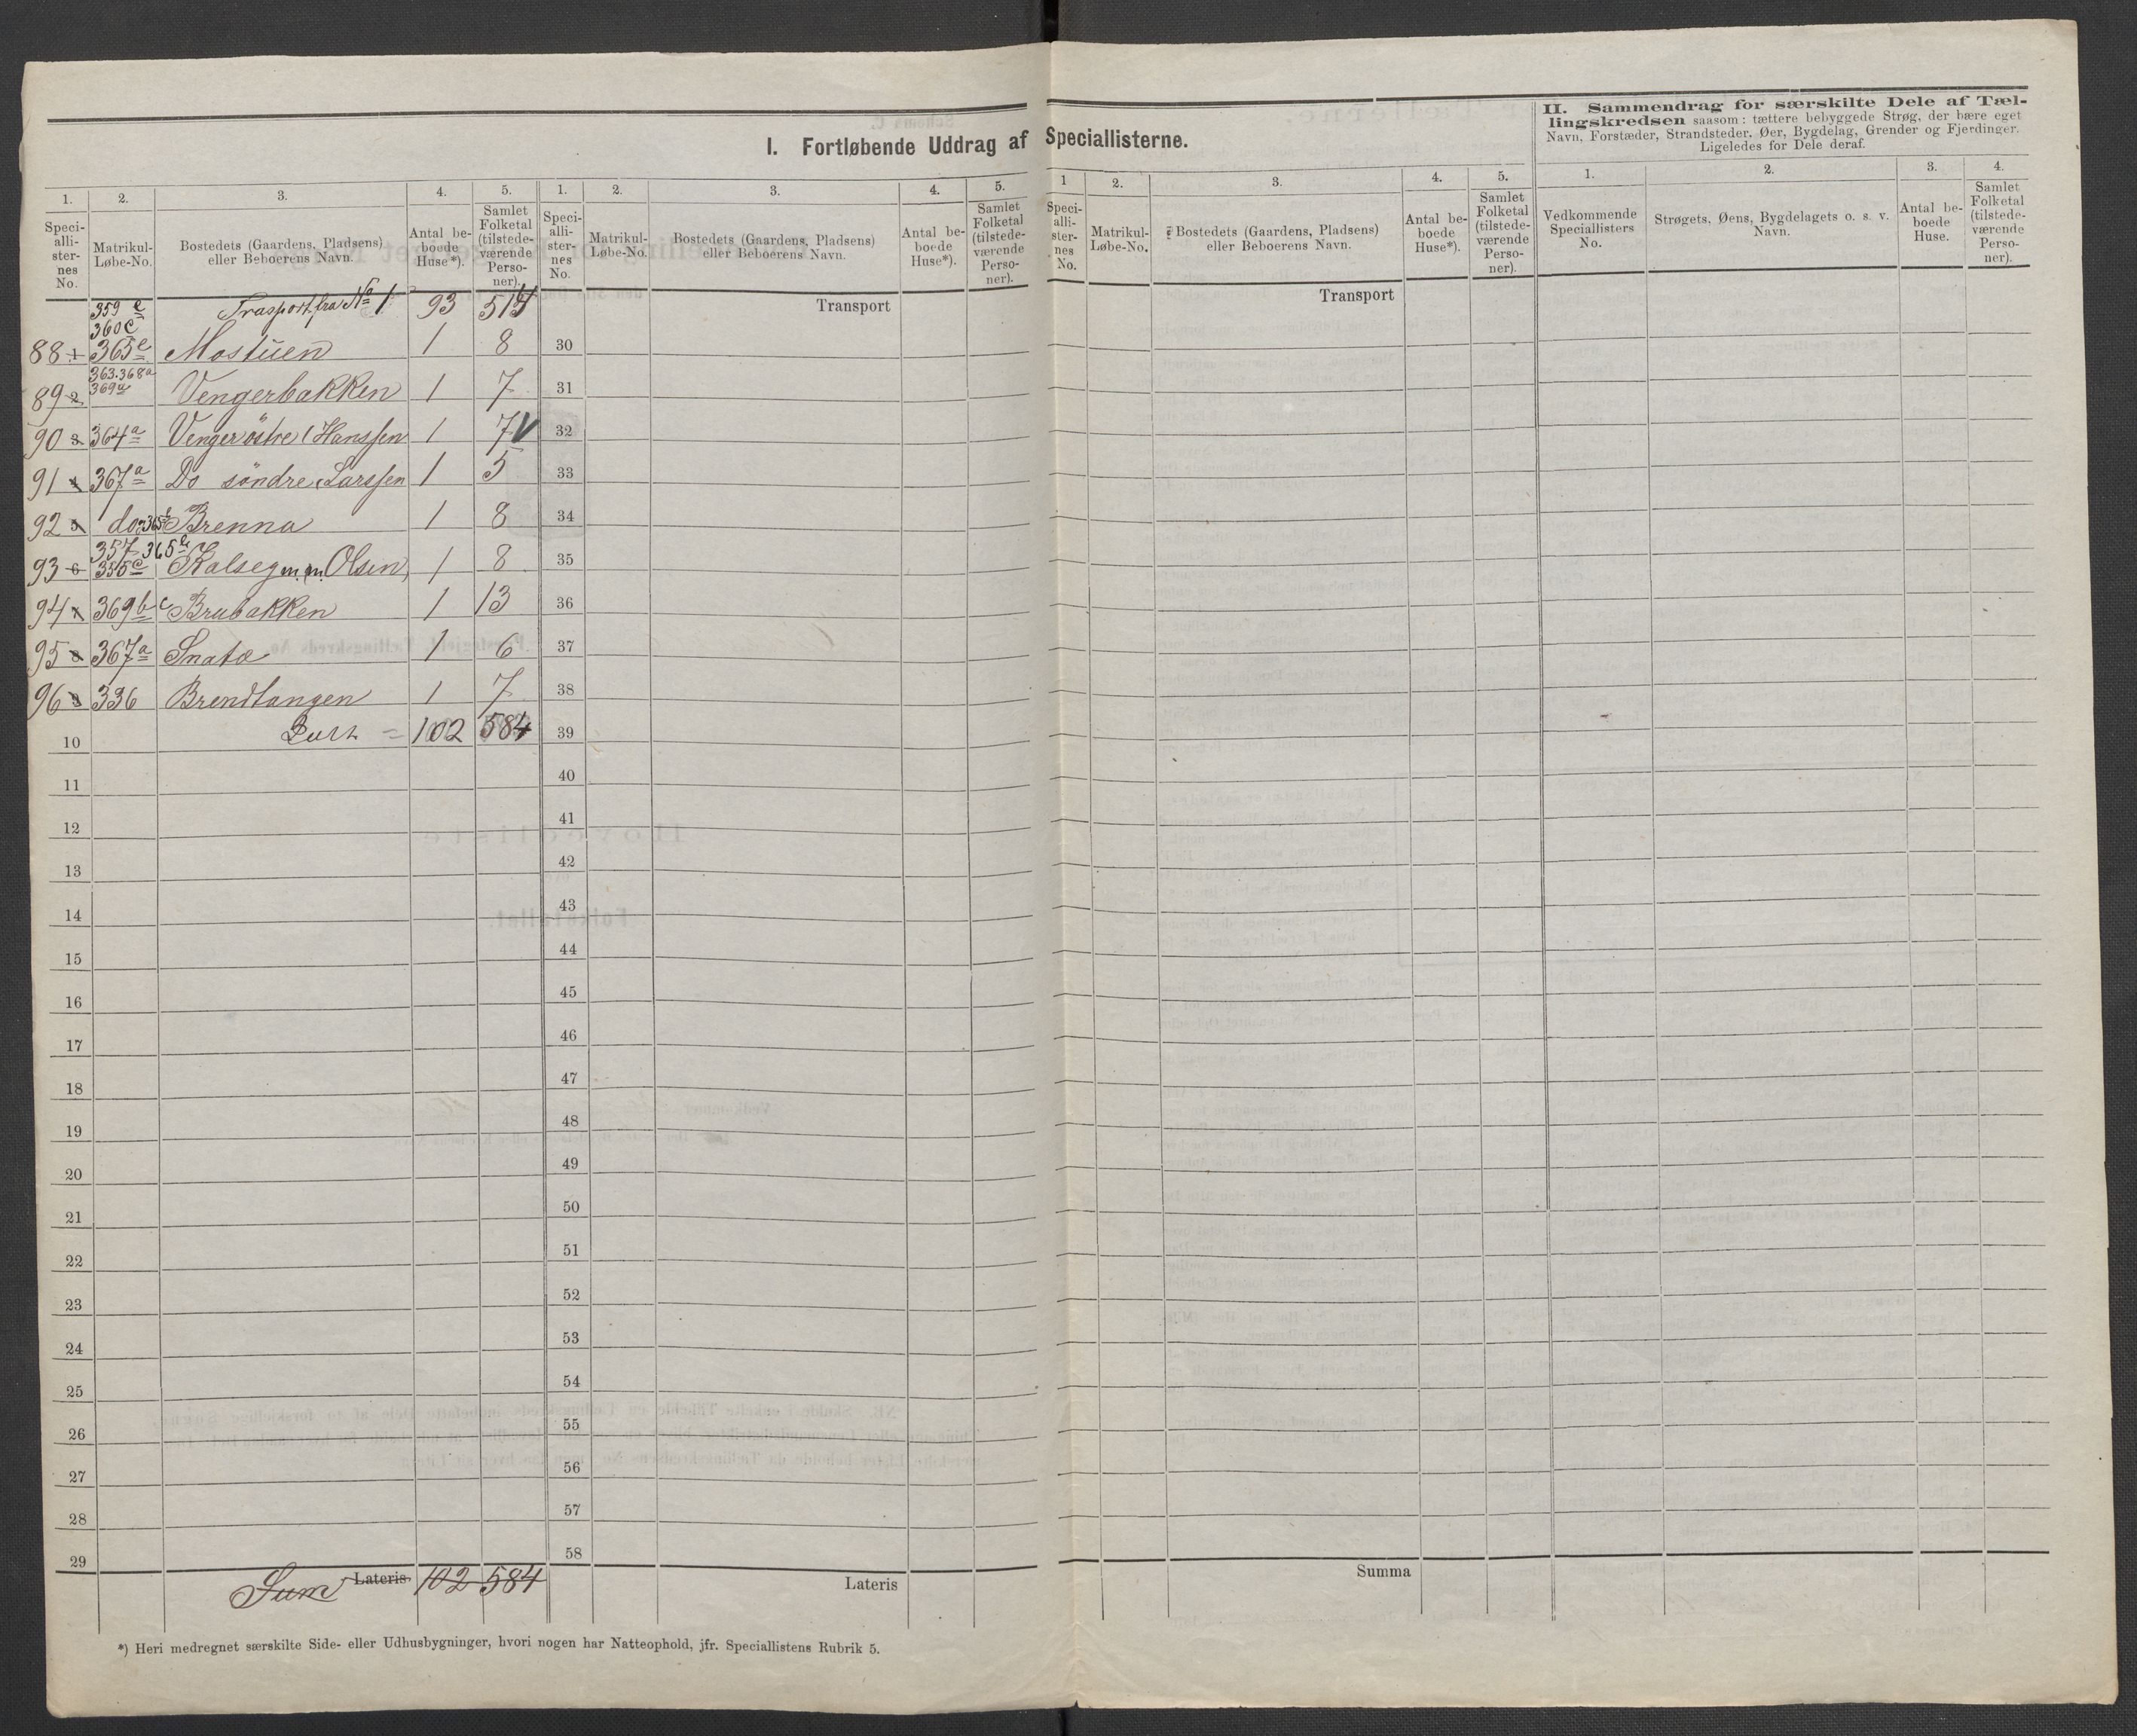 I. Fortløbende Uddrag af Speciallisterne.
II. Sammendrag for særskilte Dele af Tæl-
lingskredsen saasom: tættere bebyggede Strøg, der bære eget
Navn, Forstæder, Strandsteder, Øer, Bygdelag, Grender og Fjerdinger.
Ligeledes for Dele deraf.
1. 2. 3. 4. 5. 1. 2. 3. 4. 5. 1 2. 3. 4. 5. 1. 2. 3. 4.
Speci-
alli-
ster-
nes
No.
Matrikul-
Løbe-No.
Bostedets (Gaardens, Pladsens)
eller Beboerens Navn.
Antal be-
boede
Huse*).
Samlet
Folketal
(tilstede-
værende
Perso-
ner).
Speci-
alli-
ster-
nes
No.
Matrikul-
Løbe-No.
Bostedets (Gaardens, Pladsens)
eller Beboerens Navn.
Antal be-
boede
Huse*).
Samlet
Folketal
(tilstede-
værende
Perso-
ner).
Speci-
alli-
ster-
nes
No.
Matrikul-
Løbe-No.
Bostedets (Gaardens, Pladsens)
eller Beboerens Navn.
Antal be-
boede
Huse*).
Samlet
Folketal
(tilstede-
værende
Perso-
ner).
Vedkommende
Speciallisters
No.
Strøgets, Øens, Bygdelagets o. s. v.
Navn.
Antal be-
boede
Huse.
Samlet
Folketal
(tilstede-
værende
Perso-
ner).
Trasport fra No 1. 93 514 Transport Transport
359 e
360 c
88 1 365 e Mostuen 1 8 30
363.368a
89 2 369a Vengerbakken 1 7 31
90 3 364a Venger östre (Hanssen 1 7 V 32
91 4 367a Do söndre, Larssen 1 5 33
92 5 do Brenna 1 8 34
357 365
93 6 355c Kalseg m. m. Olsen, 1 8 35
94 7 369b c Brubakken 1 13 36
95 8 367a Snatæ 1 6 37
96 9 336 Brendtangen 1 7 38
10 = 102 584 39
11 40
12 41
13 42
14 43
15 44
16 45
17 46
18 47
19 48
20 49
21 50
22 51
23 52
24 53
25 54
26 55
27 56
28 57
29 58
Sum Lateris 102 584 Lateris Summa
*) Heri medregnet særskilte Side- eller Udhusbygninger, hvori nogen har Natteophold, jfr. Speciallistens Rubrik 5.